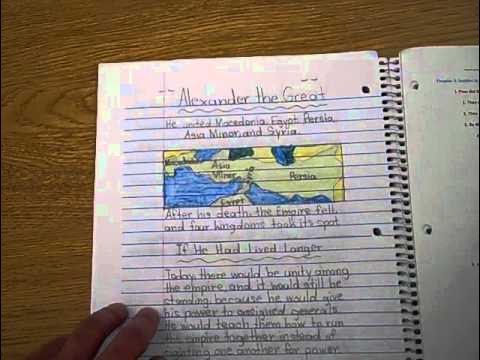 Alexander the Great
He united Macedonia, Egypt, Persia,
Asia Minor, and Syria.
Asia
Minor
Persia
Egypt
After his death, the Empire fell,
and four kingdoms took its spot.
If He Had Lived Longer
Today, there would be unity among
the empire, and it would still be
standing, because he would give
his power to assigned generals.
He would teach them how to run
his empire together instead of
against one another for power